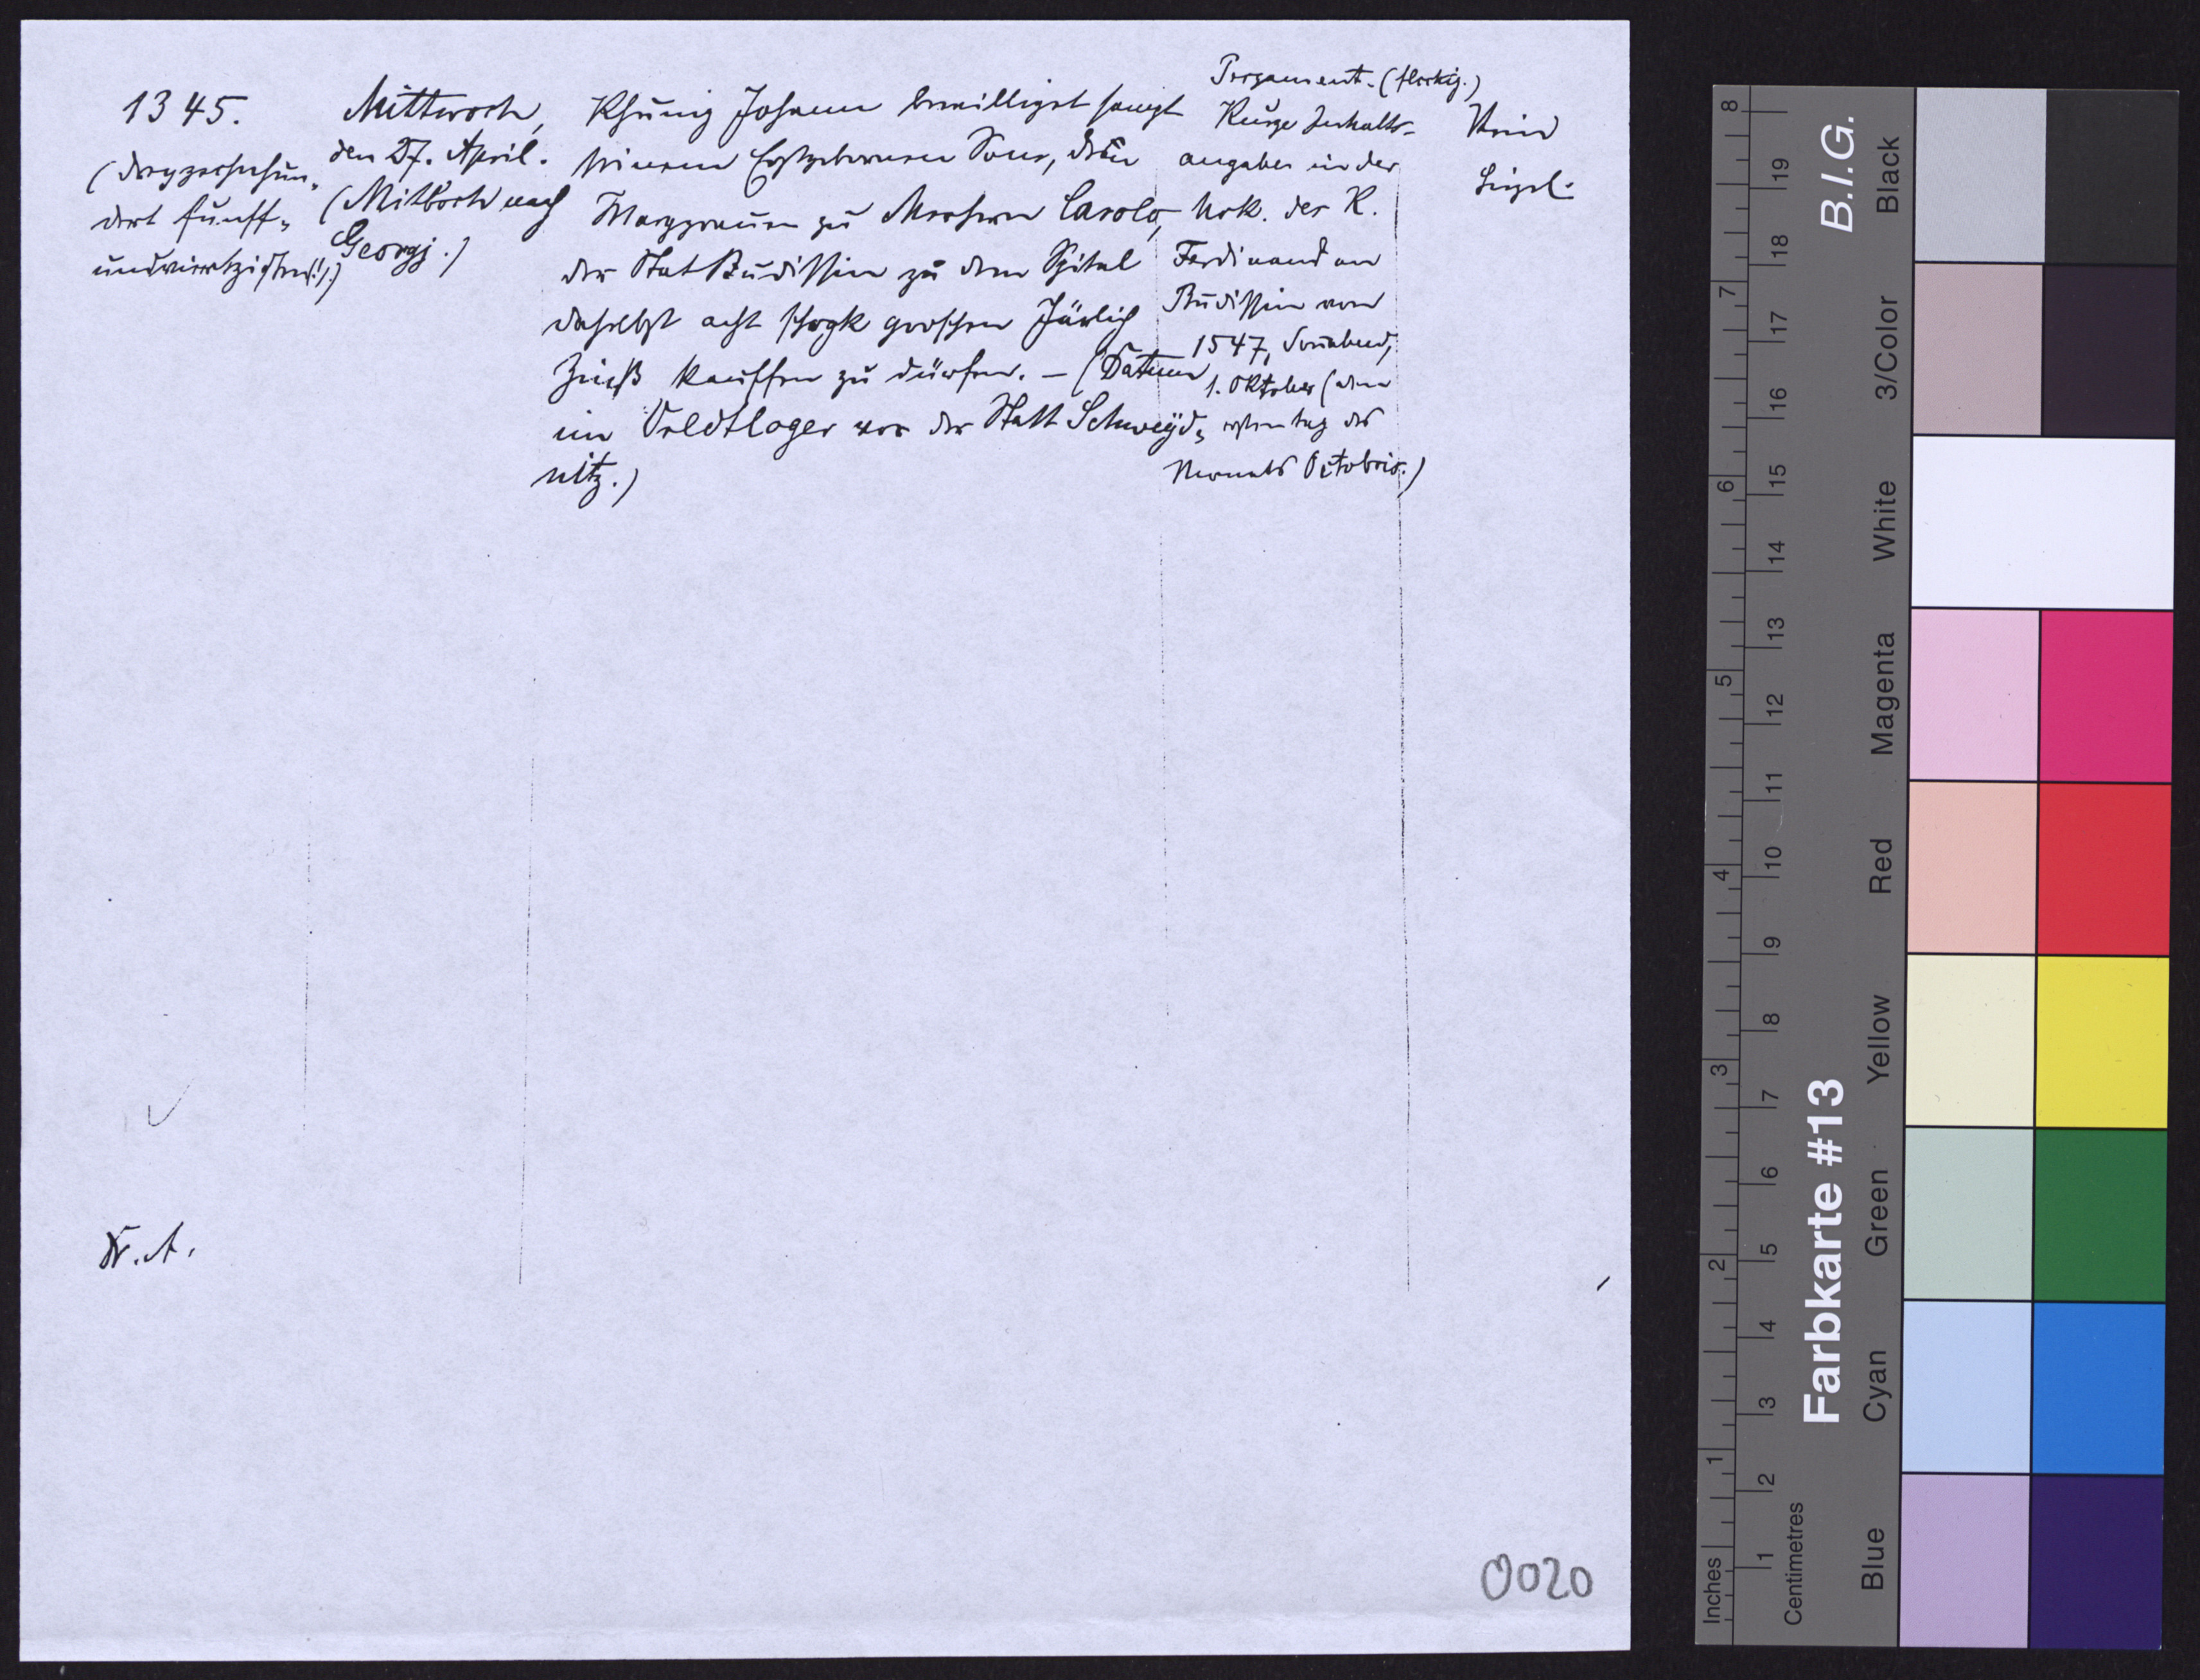 1345.
(dreyzeehnhun-
dert funff-
undviertzigsten!!)
Mittwoch,
den 27. April.
(Mitboch nach
Georgj.)
Khunig Johann bewilligt sampt
seinem Erstgebornen Sone, dem
Marggrauen zu Merhern Carolo,
der Stat Budissin zu dem Spital
daselbst acht schogk groschen Järlich
Zinß kauffen zu dürfen. – (Datum
im Veldtlager vor der Statt Schweyd-
nitz.)
Pergament. (fleckig.)
Kurze Inhalts-
angabe in der
Urk. des K.
Ferdinand an
Budissin vom
1547, Sonnabend,
1. Oktober (dem
ersten tag des
Monats Octobris.)
Kein
Siegel.
A.
0020
8
7
6
5
4
3
2
1
Inches
19
18
17
16
15
14
13
12
11
10
9
8
7
6
5
4
3
2
1
Centimetres
B.I.G.
Farbkarte #13
Black
3/Color
White
Magenta
Red
Yellow
Green
Cyan
Blue